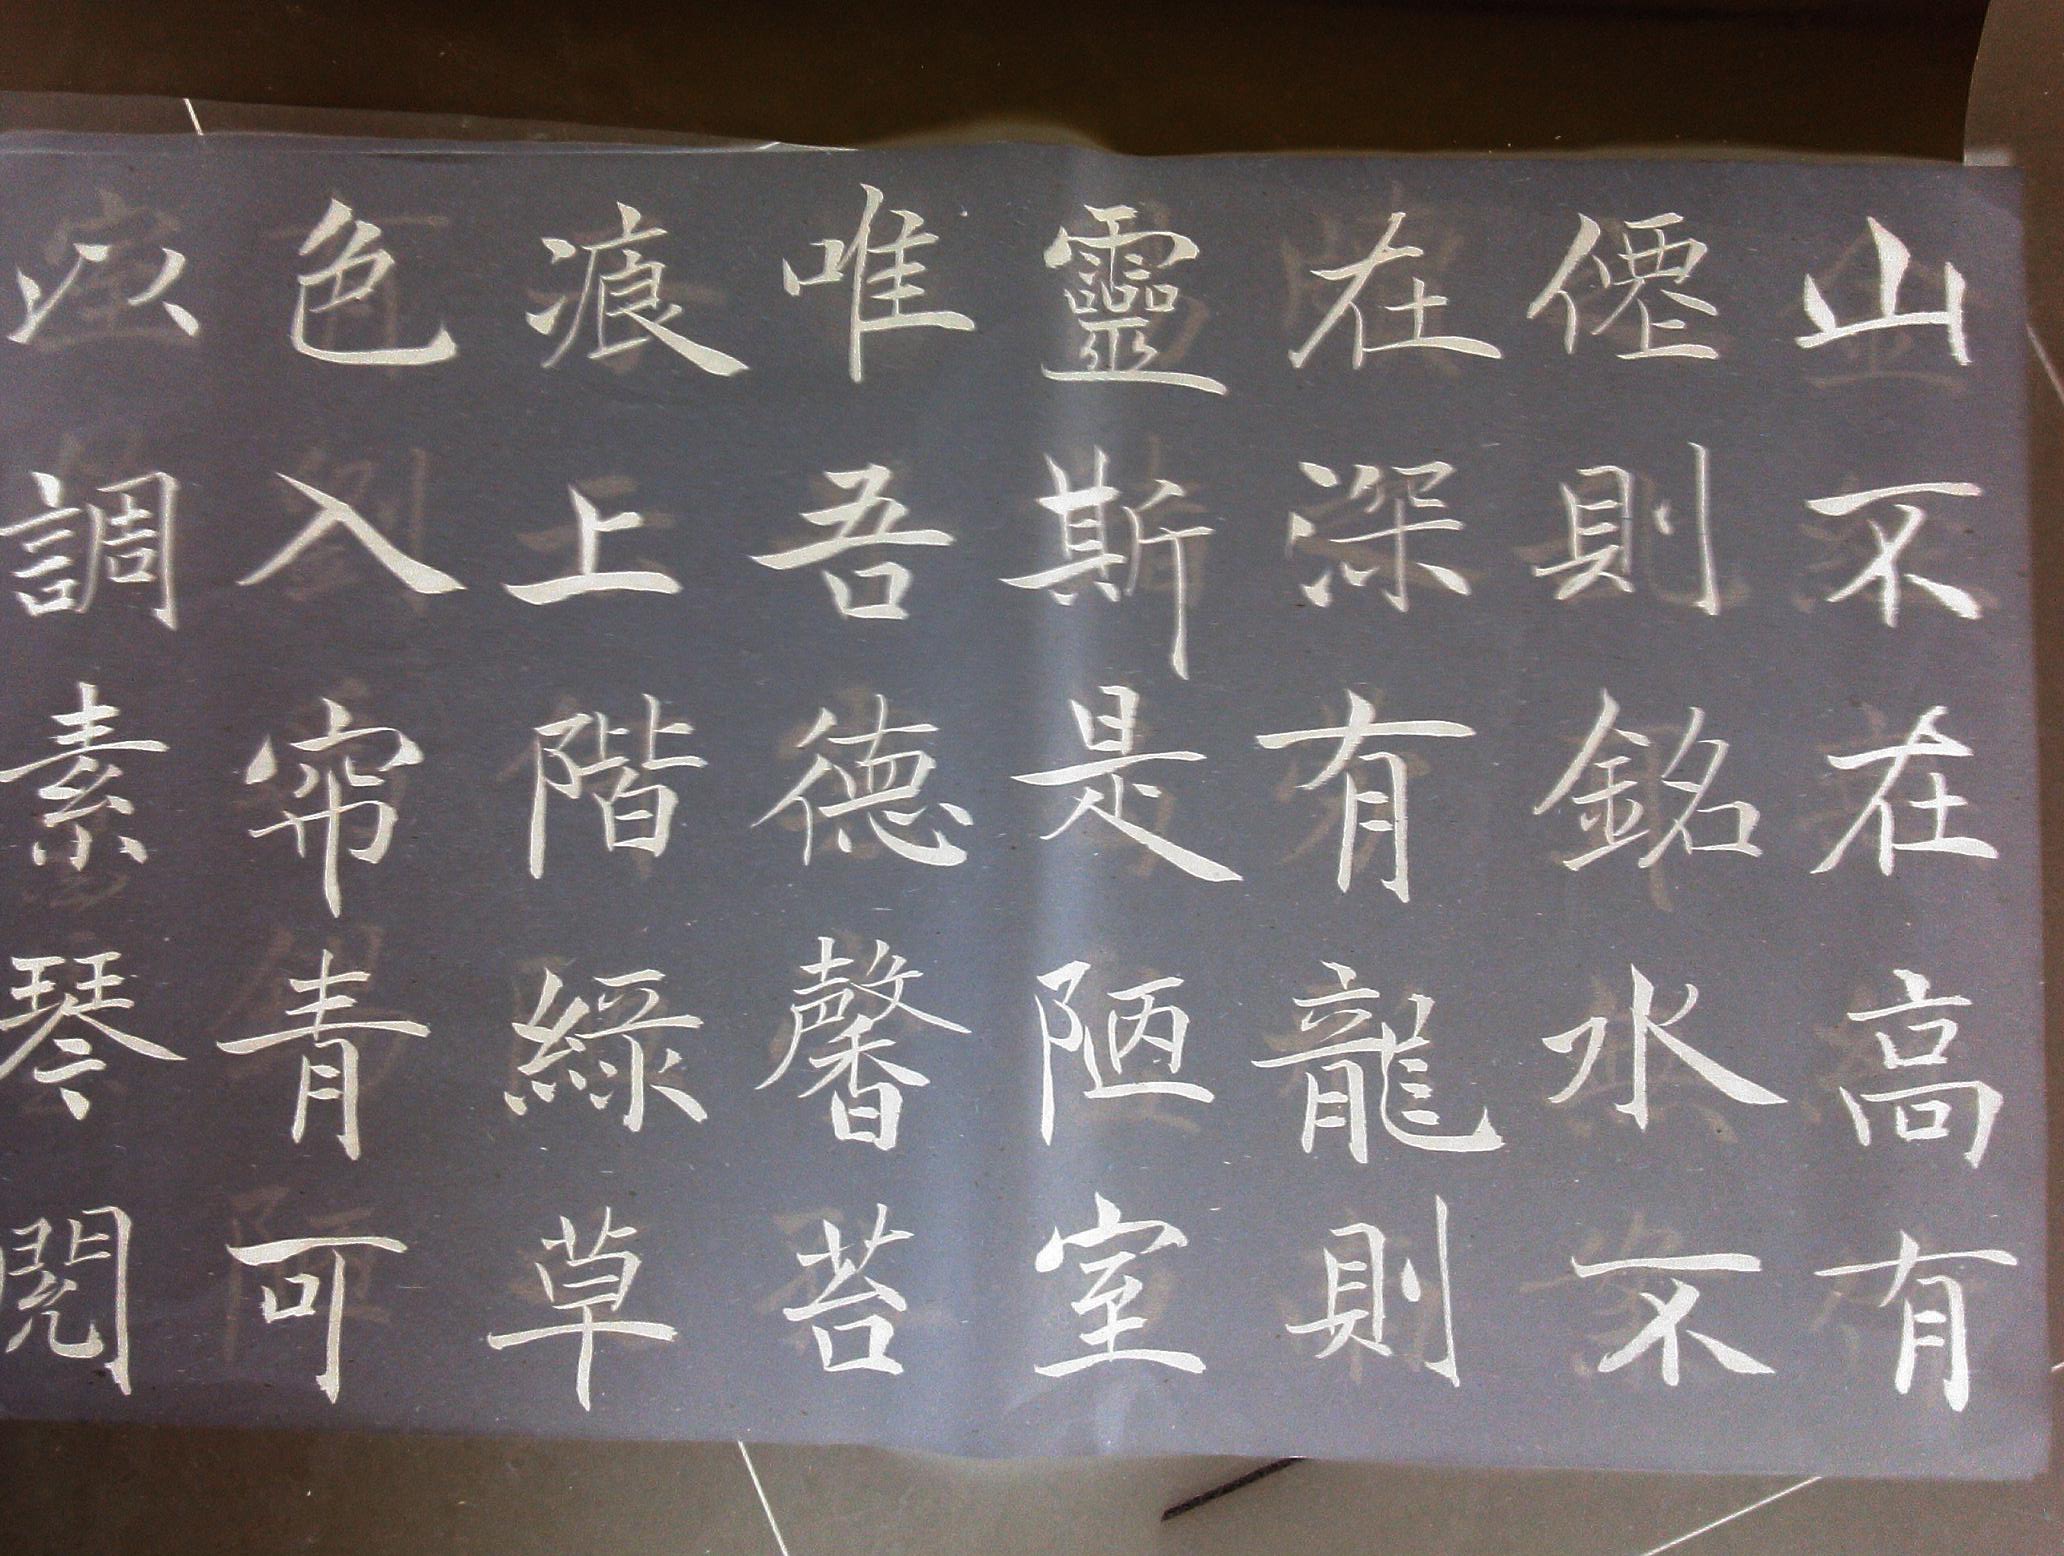 山不在高有
僊則銘水不
在深有龍則
靈斯是陋室
唯吾德馨苔
痕上階綠草
色入帘青可
以調素琴閱